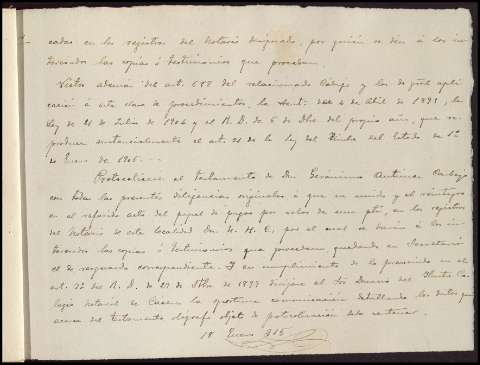 cadas en los registros del Notario designado, por quien se den á los in-
teresados las copias ó testimonios que procedan.
Vistos además del art. 688 del relacionado Código y los de gral apli
cación á esta clase de procedimientos, la Sent. de 4 de Abril de 1891, la
Ley de 21 de Julio de 1904 y el R. D. de 6 de Dbre del propio año, que re-
produce sustancialmente el art. 21 de la ley del Timbre del Estado de 1º
de Enero de 1906. --
Protocolícese el testamento de Dn. Gerónimo Antúnez
con todas las presentes diligencias originales á que va unido y el reintegro
en el referido acto del papel de pagos por valor de una pta, en los registros
del Notario de esta localidad Dn. N. H. C, por el cual se darán á los in-
teresados las copias ó testimonios que procedan quedando en Secretaría
el de resguardo correspondiente. Y en cumplimiento de lo prevenido en el
art. 12 del R. D. de 27 de Sbre de 1899 diríjase al Sor Decano del Iltre Co-
legio notarial de Cáceres la oportuna comunicación detallando los datos que
acerca del testamento ológrafo objeto de protocolización debe contener.
18 Enero 915